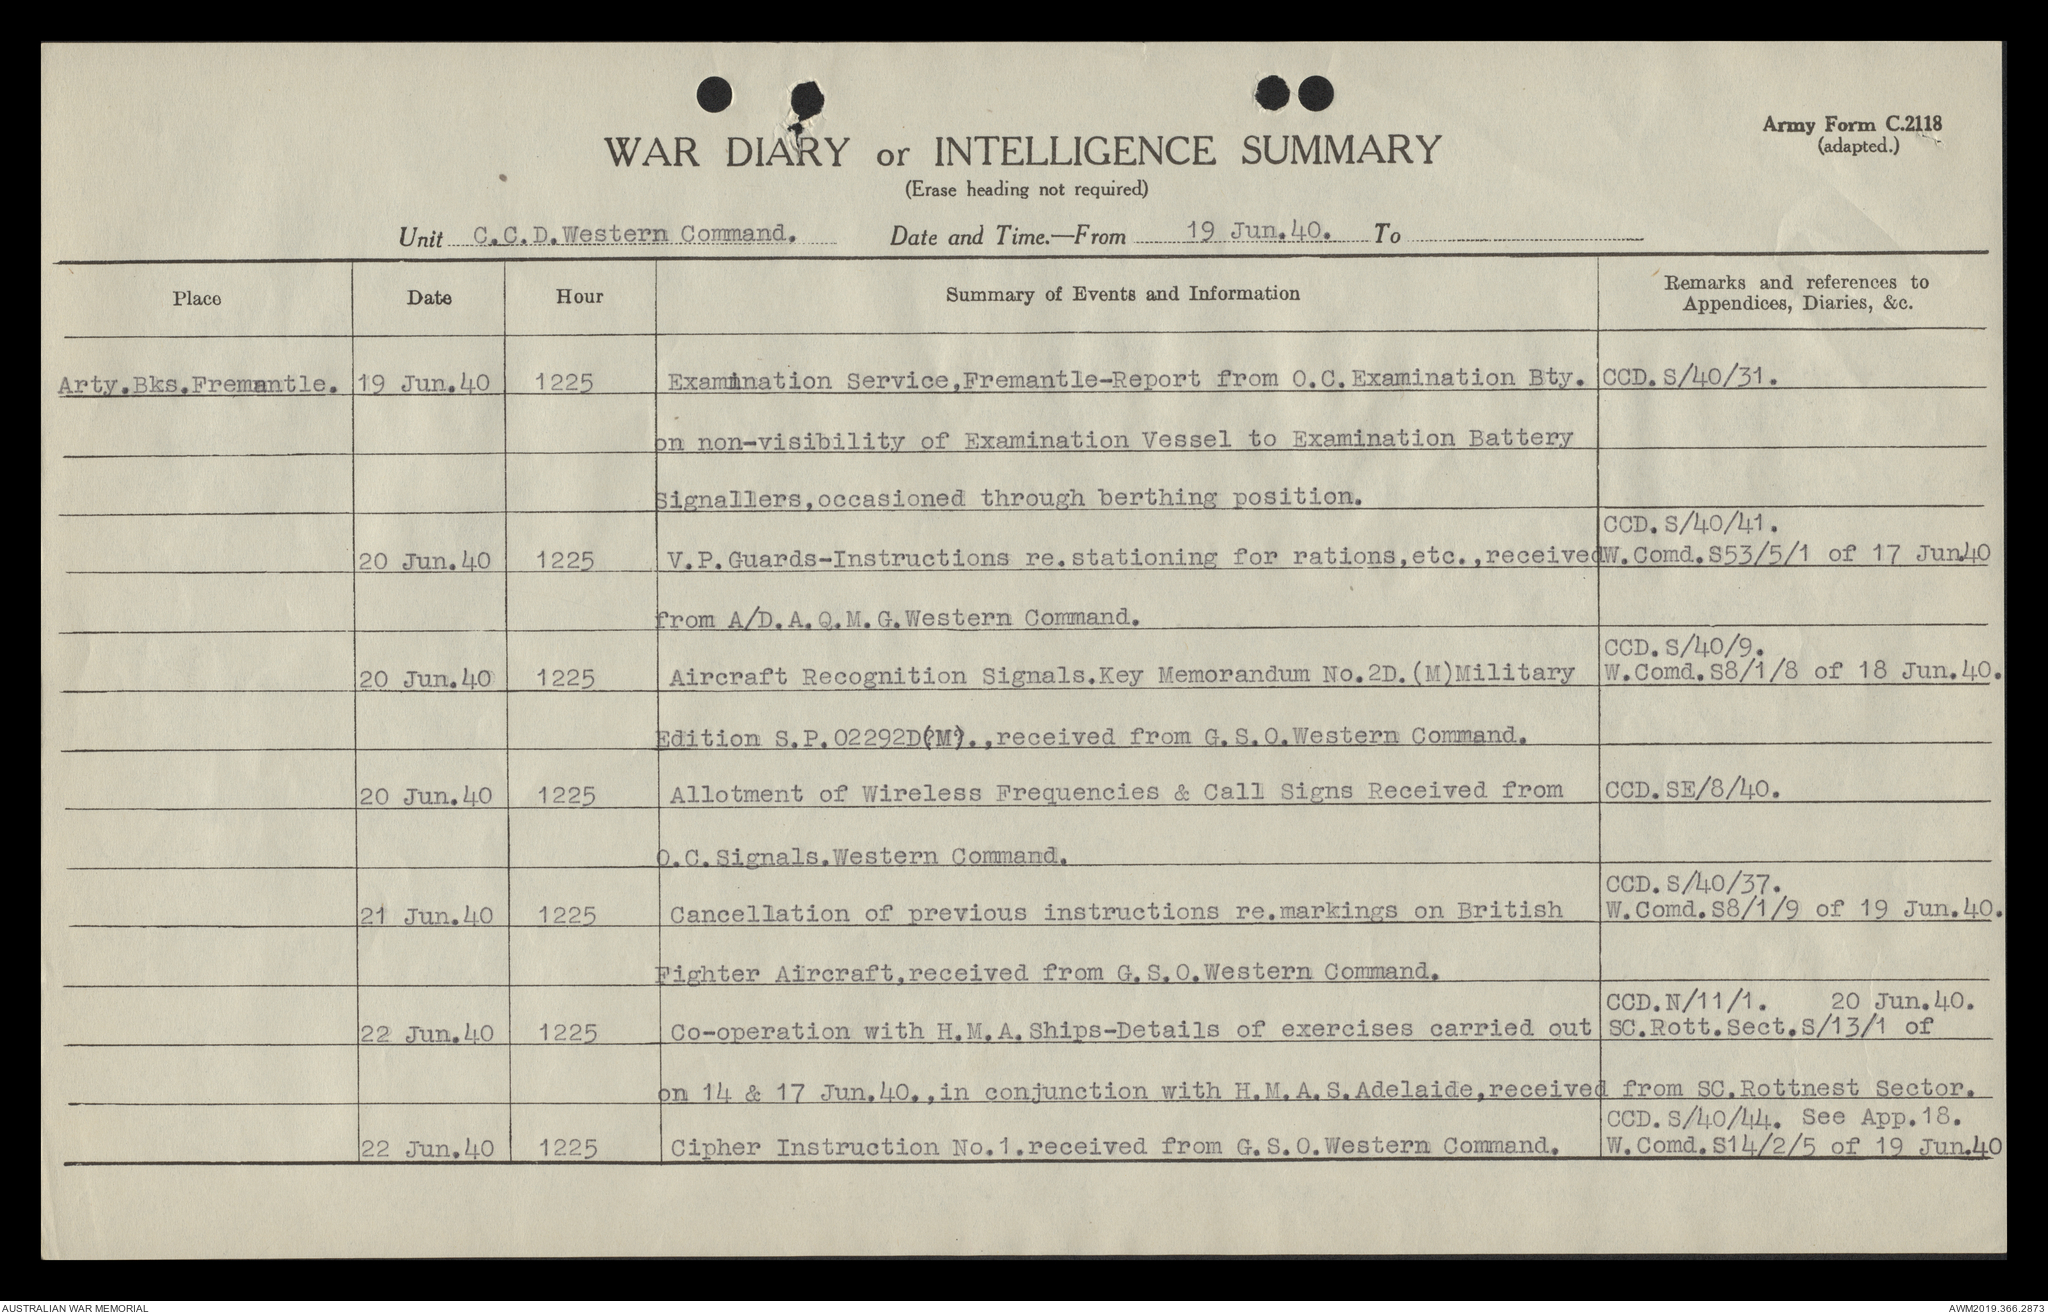 Army Form C.2118
(adapted.)
WAR DIARY or INTELLIGENCE SUMMARY
(Erase heading not required)
Unit C.C.D.Western Command. Date and Time.—From 19 Jun.40. To
Place Date Hour Summary of Events and Information Remarks and references to
Appendices, Diaries, &c.
Arty.Bks.Fremantle. 19 Jun.40 1225 Examination Service,Fremantle-Report from O.C.Examination Bty. CCD.S/40/31.
on non-visibility of Examination Vessel to Examination Battery
Signallers,occasioned through berthing position.
CCD.S/40/41.
20 Jun.40 1225 V.P.Guards-Instructions re.stationing for rations,etc.,received W.Comd.S53/5/1 of 17 Jun.40
from A/D.A.Q.M.G.Western Command.
CCD.S/40/9.
20 Jun.40 1225 Aircraft Recognition Signals.Key Memorandum No.2D.(M)Military W.Comd.S8/1/8 of 18 Jun.40.
Edition S.P.02292D(M).,received from G.S.O.Western Command.
20 Jun.40 1225 Allotment of Wireless Frequencies & Call Signs Received from CCD.SE/8/40.
O.C.Signals.Western Command.
CCD.S/40/37.
21 Jun.40 1225 Cancellation of previous instructions re.markings on British W.Comd.S8/1/9 of 19 Jun.40.
Fighter Aircraft,received from G.S.O.Western Command.
CCD.N/11/1. 20 Jun.40.
22 Jun.40 1225 Co-operation with H.M.A.Ships-Details of exercises carried out SC.Rott.Sect.S/13/1 of
on 14 & 17 Jun.40.,in conjunction with H.M.A.S.Adelaide,received from SC.Rottnest Sector.
CCD.S/40/44. See App.18.
22 Jun.40 1225 Cipher Instruction No.1.received from G.S.O.Western Command. W.Comd.S14/2/5 of 19 Jun.40
AUSTRALIAN WAR MEMORIAL AWM2019.366.2873